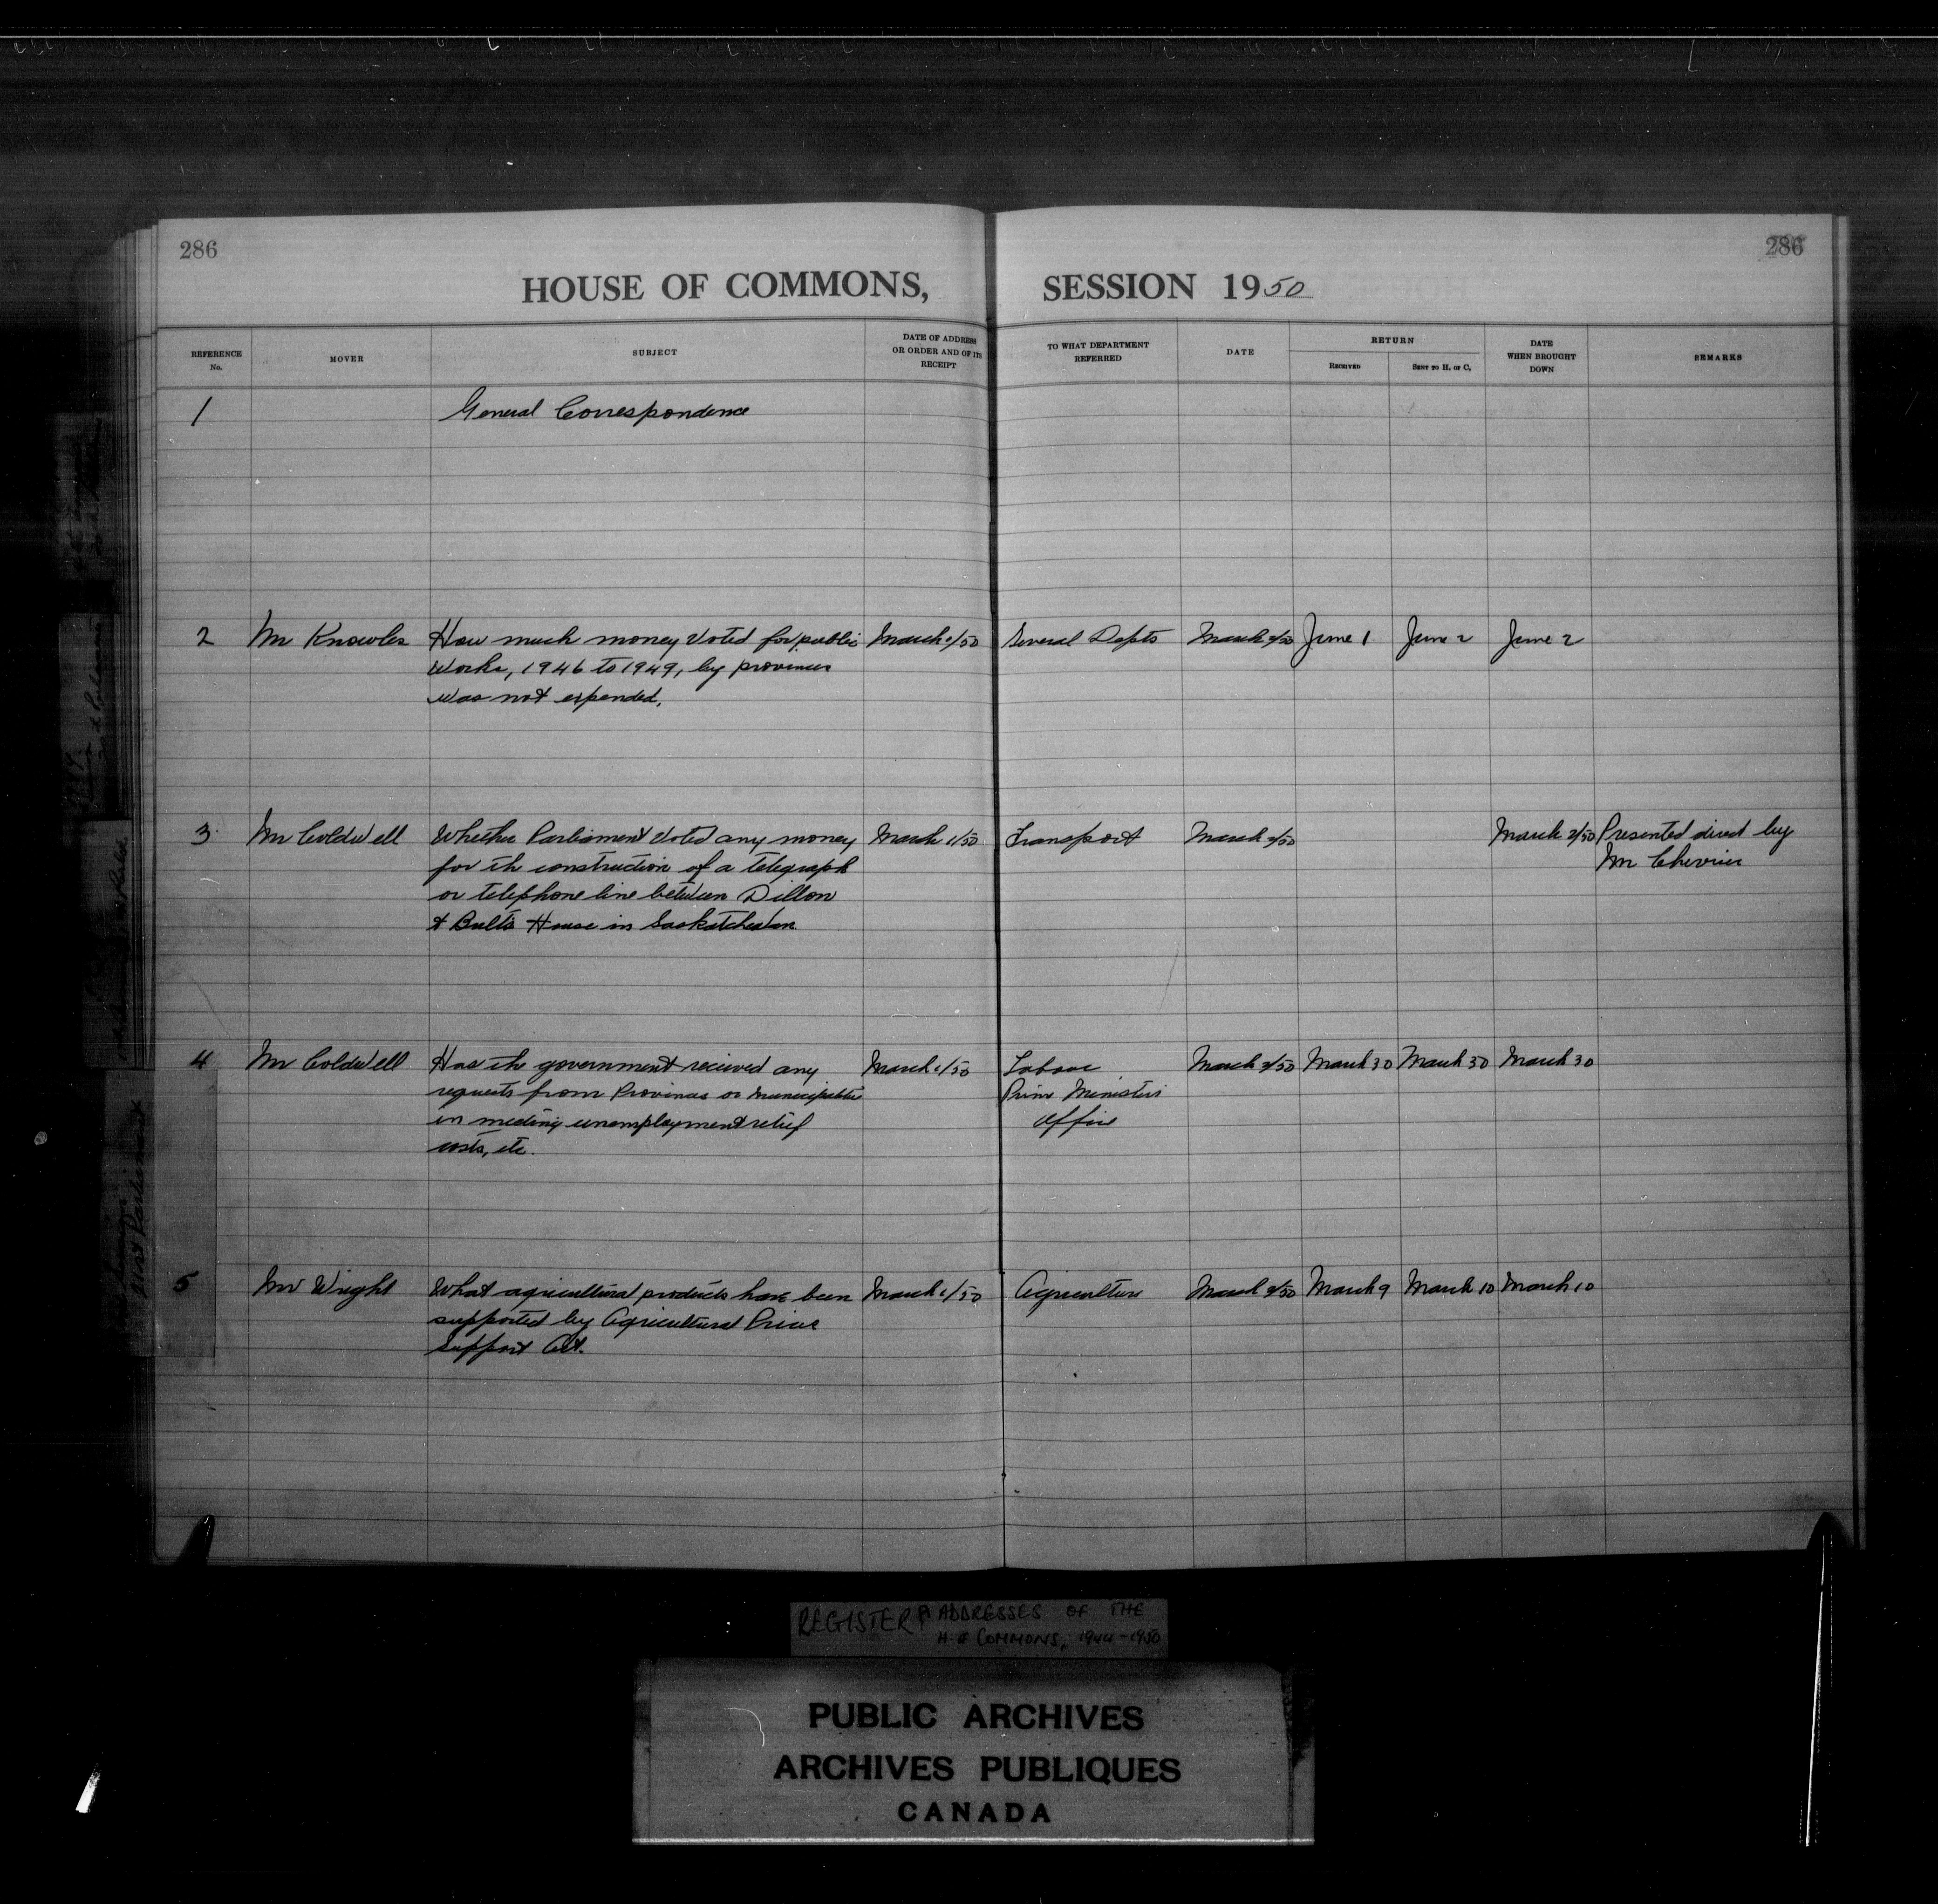 286
286
HOUSE OF COMMONS, SESSION 1950
REFERENCE No.
MOVER
SUBJECT
DATE OF ADDRESS OR ORDER AND OF ITS RECEIPT
TO WHAT DEPARTMENT REFERRED
DATE
RETURN
RECEIVED
SENT TO H. OF C.
DATE WHEN BROUGHT DOWN
REMARKS
1 General Correspondence
2 Mr Knowles How much money voted for public March 1/50 Several Depts March 2/50 June 1 June 2 June 2
Works, 1946 to 1949, by provinces
was not expended.
3 Mr Coldwell Whether Parliament voted any money March 1/50 Transport March 2/50 March 2/50 Presented direct by
for the construction of a telegraph Mr Chevrier
or telephone line between Dillon
& Bull's House in Saskatchewan
4 Mr Coldwell Has the government received any March 1/50 Labour March 2/50 March 30 March 30 March 30
requests from Provinces or Municipalities Prime Ministers
in meeting unemployment relief Office
costs, etc.
5 Mr Wright What agricultural products have been March 1/50 Agriculture March 2/50 March 9 March 10 March 10
supported by Agricultural Prices
Support Act.
21st Parliament
REGISTER OF ADDRESSES OF THE
H. of COMMONS, 1944-1950
PUBLIC ARCHIVES
ARCHIVES PUBLIQUES
CANADA